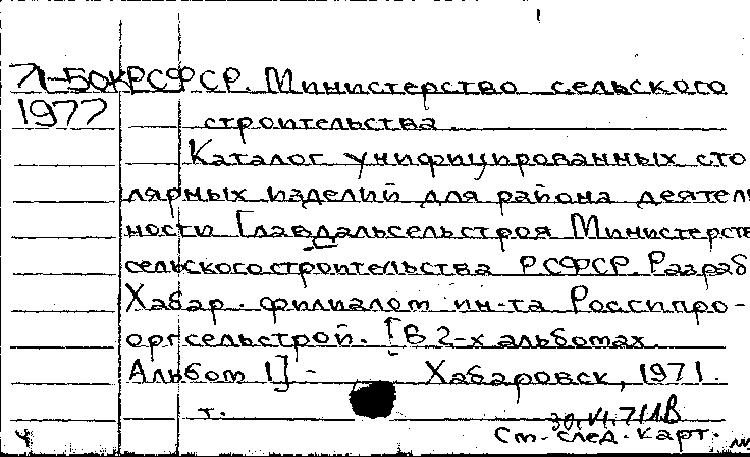 71-50к РСФСР. Министерство сельского
1977 строительства.
Каталог унифицированных сто
лярных изделий для района деятель
ности Главдальсельстроя Министерств
сельского строительства РСФСР. Разраб
Хабар. филиалом ин-та Росгипро-
оргсельстрой. [В 2-х альбомах.
Альбом 1] - Хабаровск, 1971.
т.
30.VI.71
См. след. карт.